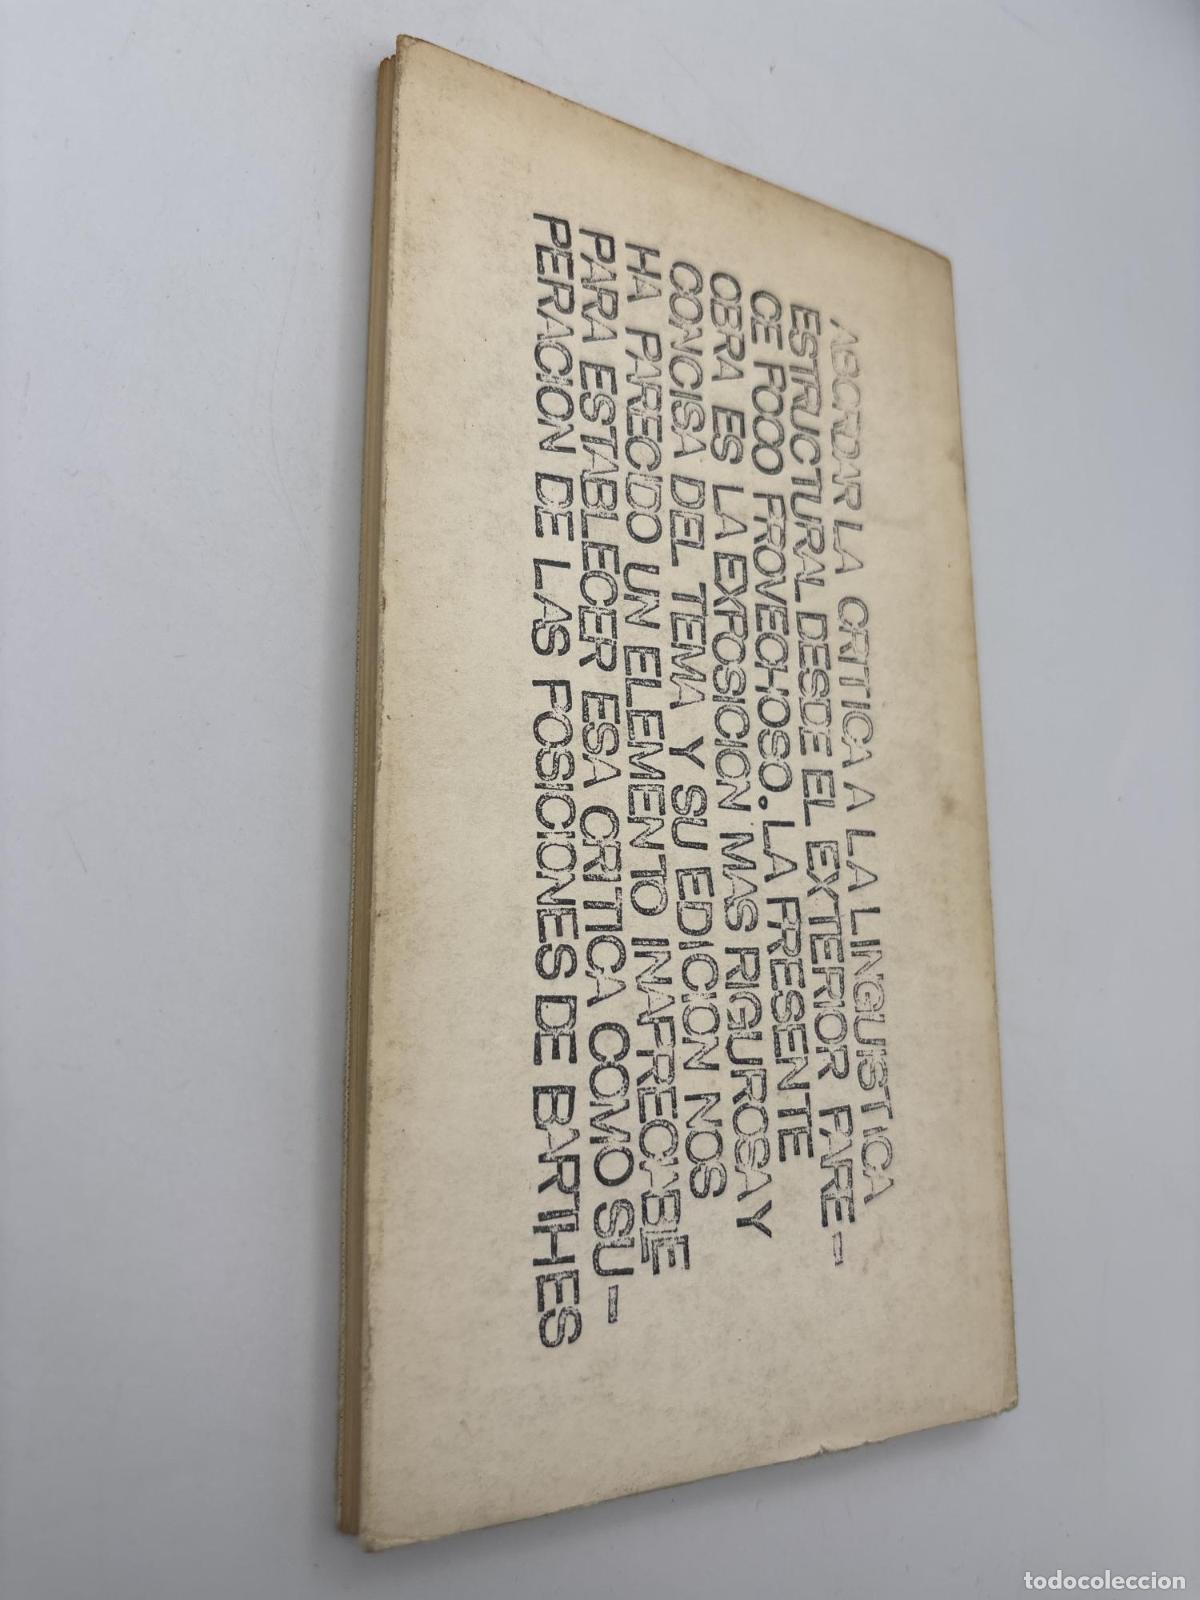 ABORDAR LA CRITICA A LA LINGUISTICA
ESTRUCTURAL DESDE EL EXTERIOR PARE-
CE POCO PROVECHOSO. LA PRESENTE
OBRA ES LA EXPOSICION MAS RIGUROSA Y
CONCISA DEL TEMA Y SU EDICION NOS
HA PARECIDO UN ELEMENTO INAPRECIABLE
PARA ESTABLECER ESA CRITICA COMO SU-
PERACION DE LAS POSICIONES DE BARTHES
todocoleccion